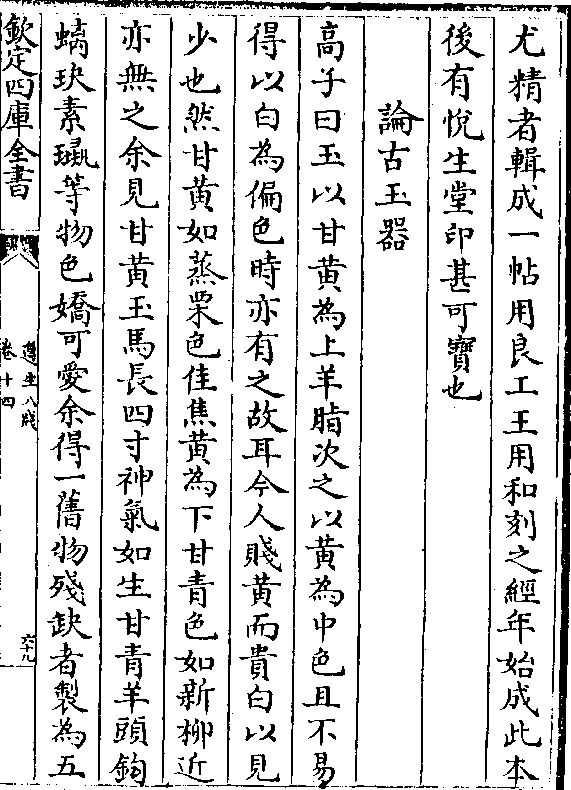 尤精者輯成一帖用良工王用和刻之經年始成此本
後有悅生堂印甚可寶也
論古玉器
高子曰玉以甘黃為上羊脂次之以黃為中色且不易
得以白為偏色時亦有之故耳今人賤黃而貴白以見
少也然甘黃如蒸栗色佳焦黃為下甘青色如新柳近
亦無之余見甘黃玉馬長四寸神氣如生甘青羊頭鈎
螭玦素璊等物色嬌可愛余得一舊物殘缺者製為五
欽定四庫全書
遵生八牋
卷十四
六十九